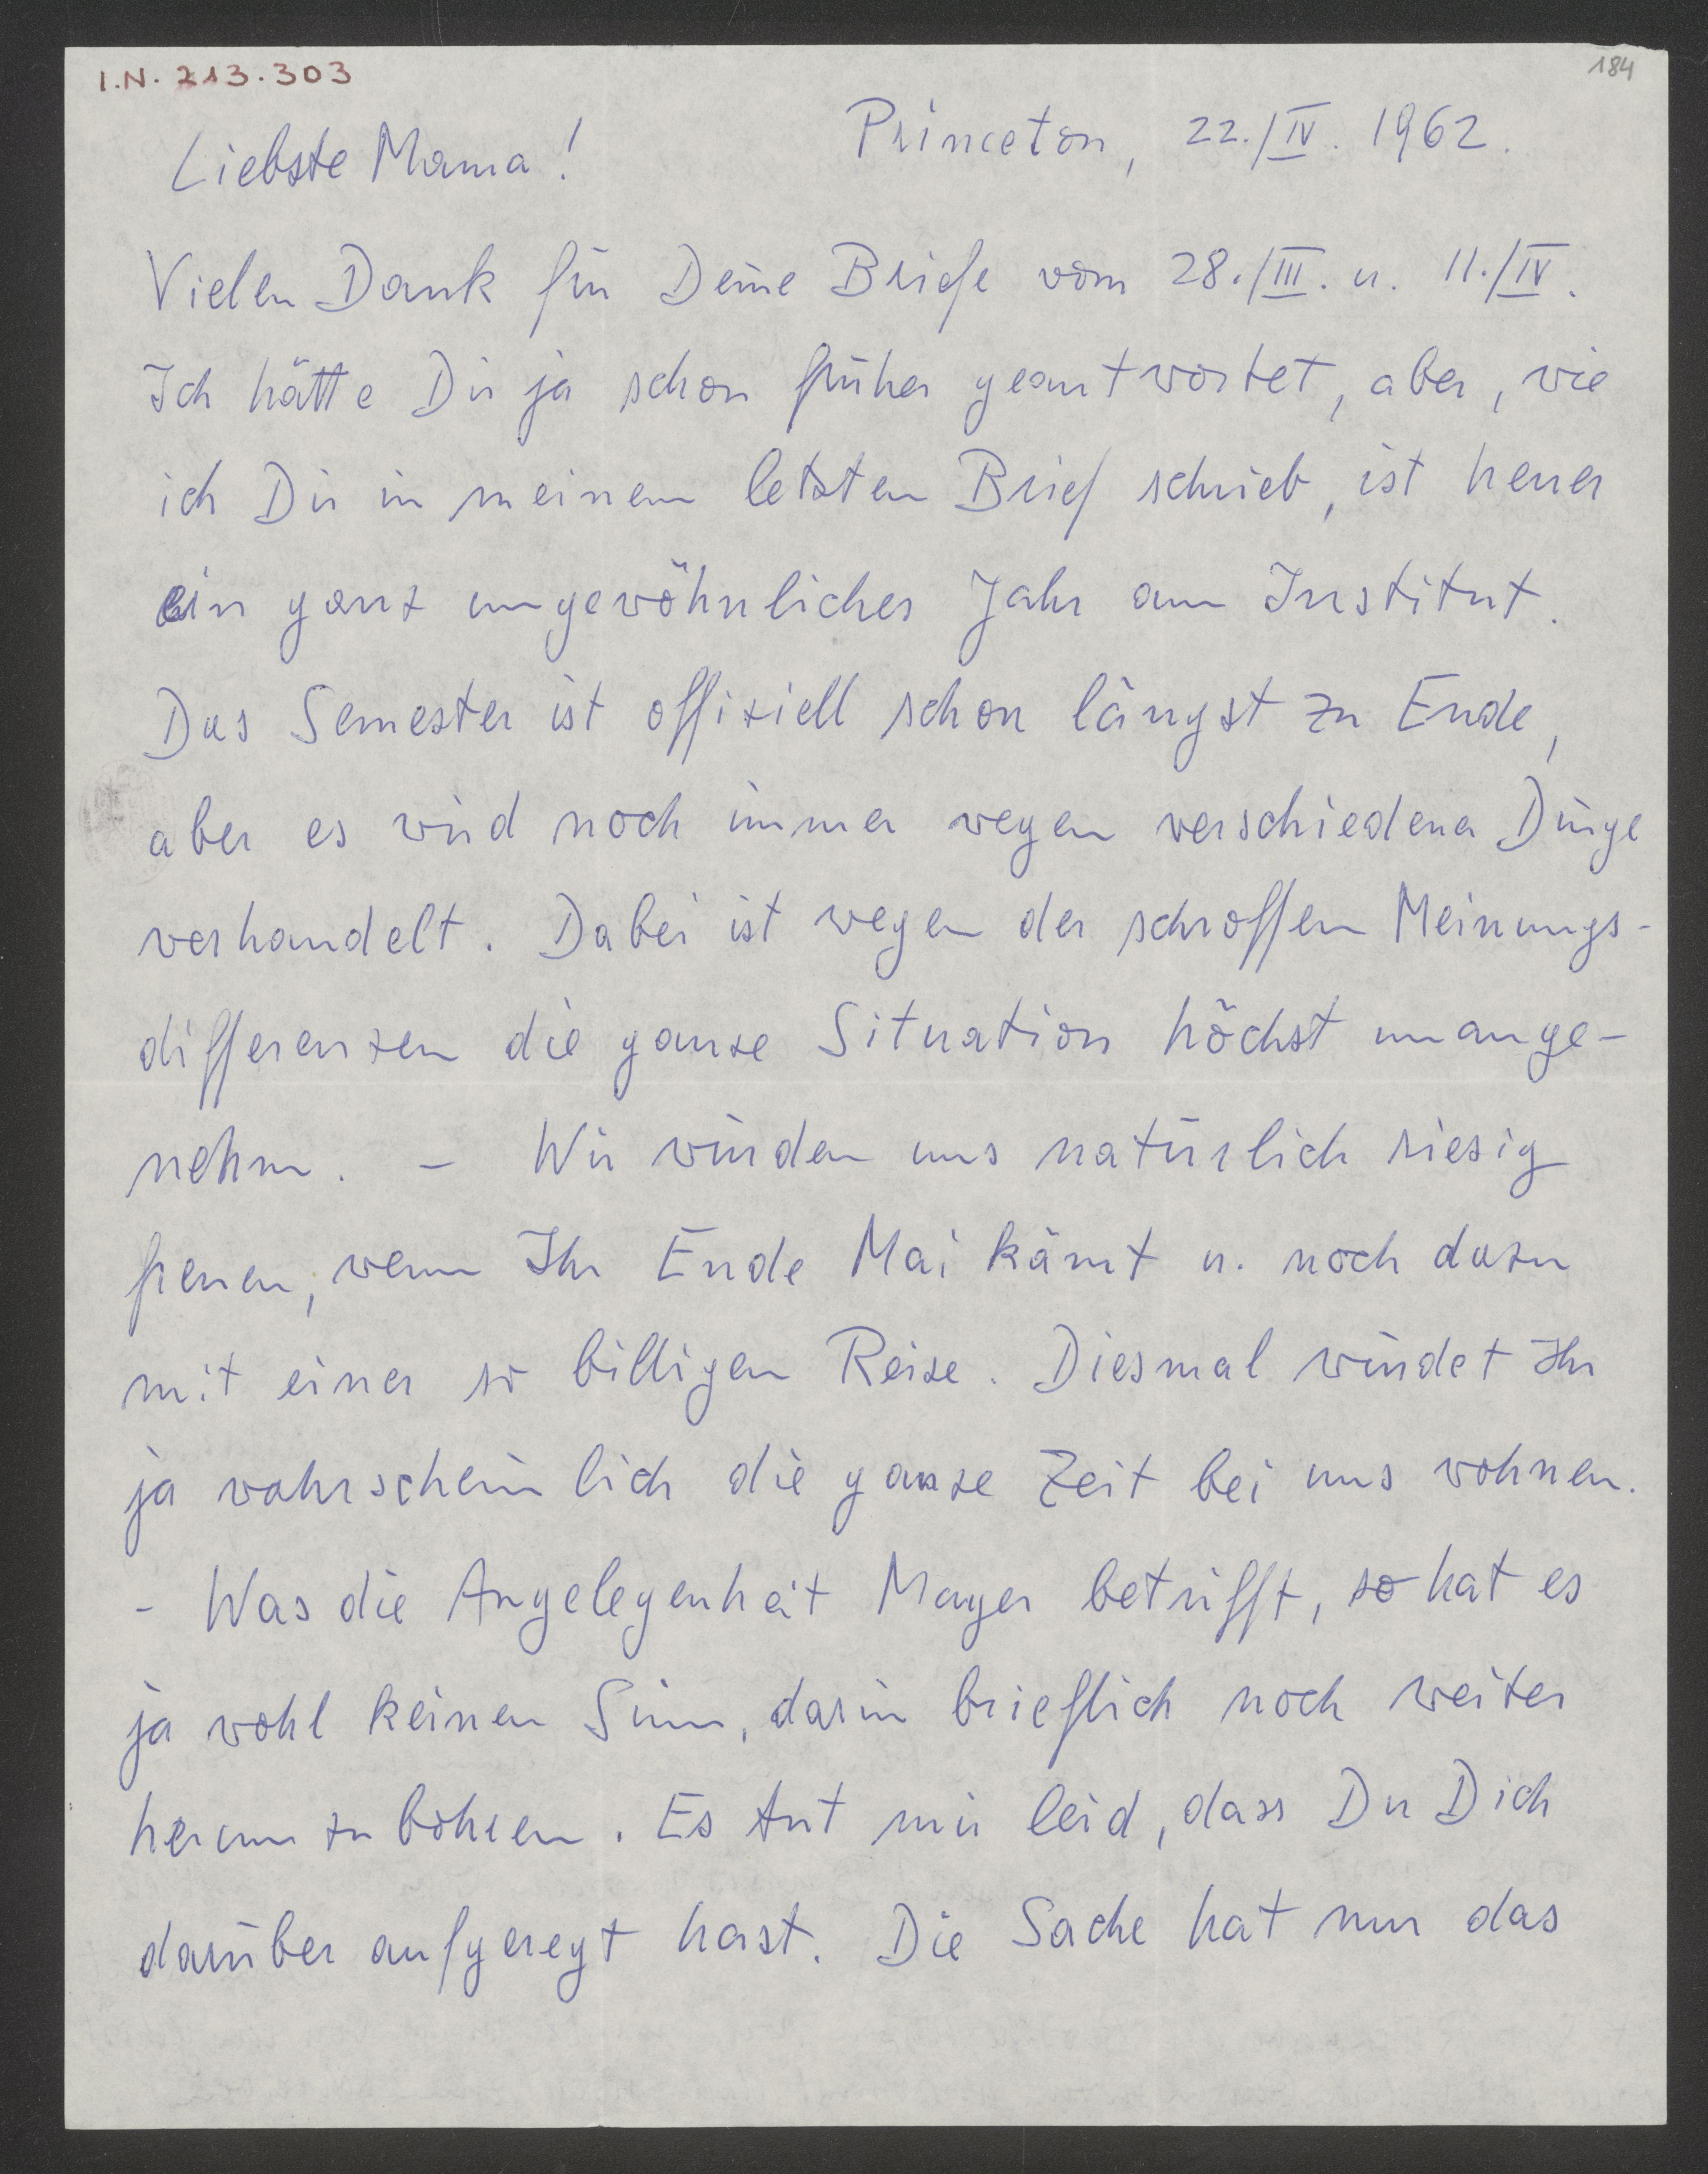 I.N. 213.303
184
Princeton, 22./IV. 1962.
Liebste Mama!
Vielen Dank für Deine Briefe vom 28./III. u. 11./IV.
Ich hätte Dir ja schon früher geantwortet, aber, wie
ich Dir in meinem letzten Brief schrieb, ist heuer
ein ganz ungewöhnliches Jahr am Institut.
Das Semester ist offiziell schon längst zu Ende,
aber es wird noch immer wegen verschiedener Dinge
verhandelt. Dabei ist wegen der schroffen Meinungs-
differenzen die ganze Situation höchst unange-
nehm. – Wir würden uns natürlich riesig
freuen, wenn Ihr Ende Mai kämt u. noch dazu
mit einer so billigen Reise. Diesmal würdet Ihr
ja wahrscheinlich die ganze Zeit bei uns wohnen.
- Was die Angelegenheit Mayer betrifft, so hat es
ja wohl keinen Sinn, darin brieflich noch weiter
herum zu bohren. Es tut mir leid, dass Du Dich
darüber aufgeregt hast. Die Sache hat nur das